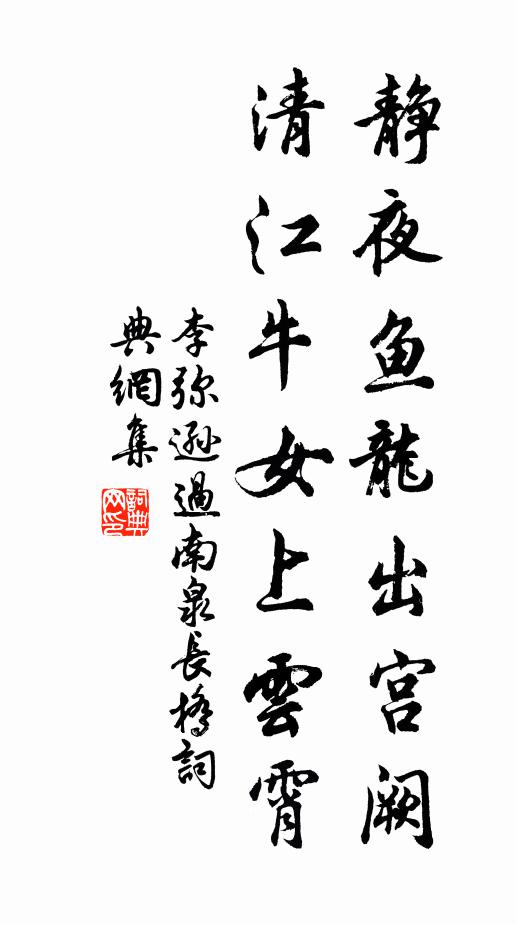 静夜鱼龍出宫阙
清江牛女上雲霄
李弥遜過南泉長橋詞
典網集
詞典
网印